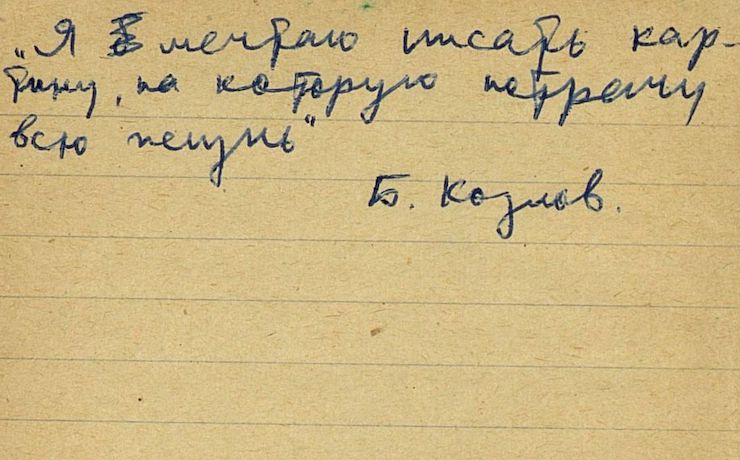 „Я мечтаю писать кар-
тину, на которую потрачу
всю жизнь"
Б. Козлов.